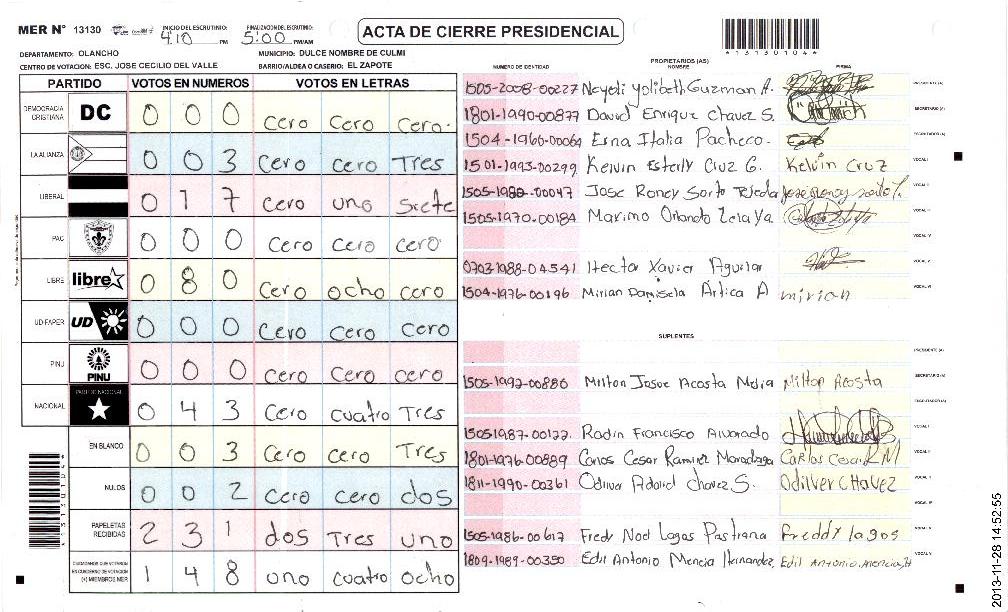 MER Nº 13130 INICIO DEL ESCRUTINIO: 4:10 PM FINALIZACION DEL ESCRUTINIO: 5:00 PM/AM
ACTA DE CIERRE PRESIDENCIAL
*131301044*
DEPARTAMENTO: OLANCHO MUNICIPIO: DULCE NOMBRE DE CULMI
CENTRO DE VOTACION: ESC. JOSE CECILIO DEL VALLE BARRIO/ALDEA O CASERIO: EL ZAPOTE
PARTIDO VOTOS EN NUMEROS VOTOS EN LETRAS
DEMOCRACIA CRISTIANA DC 0 0 0 cero cero cero.
LA ALIANZA 0 0 3 cero cero Tres
LIBERAL 0 1 7 cero uno siete
PAC 0 0 0 cero cero cero
LIBRE libre 0 8 0 cero ocho cero
UD-FAPER UD 0 0 0 cero cero cero
PINU PINU 0 0 0 cero cero cero
NACIONAL PARTIDO NACIONAL 0 4 3 cero cuatro Tres
EN BLANCO 0 0 3 cero cero Tres
NULOS 0 0 2 cero cero dos
PAPELETAS RECIBIDAS 2 3 1 dos Tres uno
CIUDADANOS QUE VOTARON EN CUADERNO DE VOTACION (+) MIEMBROS MER 1 4 8 uno cuatro ocho
PROPIETARIOS (AS)
NUMERO DE IDENTIDAD NOMBRE FIRMA
1505-2008-00227 Guzman A. PRESIDENTE (A)
1801-1990-00877 David Enrique Chavez S. SECRETARIO (A)
1504-1966-00064 Erna Italia Pacheco. ESCRUTADOR (A)
1501-1993-00299 Kelvin Esterly Cruz G. Kelvin Cruz VOCAL I
1505-1980-00047 Jose Roney Sorto VOCAL II
1505-1970-00184 Maximo Orlando Zelaya VOCAL III
VOCAL IV
0703-1988-04541 Hector Xavier Aguilar VOCAL V
1504-1976-00196 Mirian Damisela Artica A mirian VOCAL VI
SUPLENTES
PRESIDENTE (A)
1505-1992-00886 Milton Josue Acosta Mejia Milton Acosta SECRETARIO (A)
ESCRUTADOR (A)
1505-1987-00122. Rodin Francisco Alvarado VOCAL I
1801-1976-00889 Carlos Cesar Ramirez Carlos Cesar R M VOCAL II
1811-1990-00361 Chavez S. Odilver Chavez
1505-1986-00617 Fredy Noel Lagos Pastrana Freddy lagos
1809-1989-00350 Edil Antonio Mencia Hernandez Edil Antonio Mencia H
2013-11-28 14:52:55